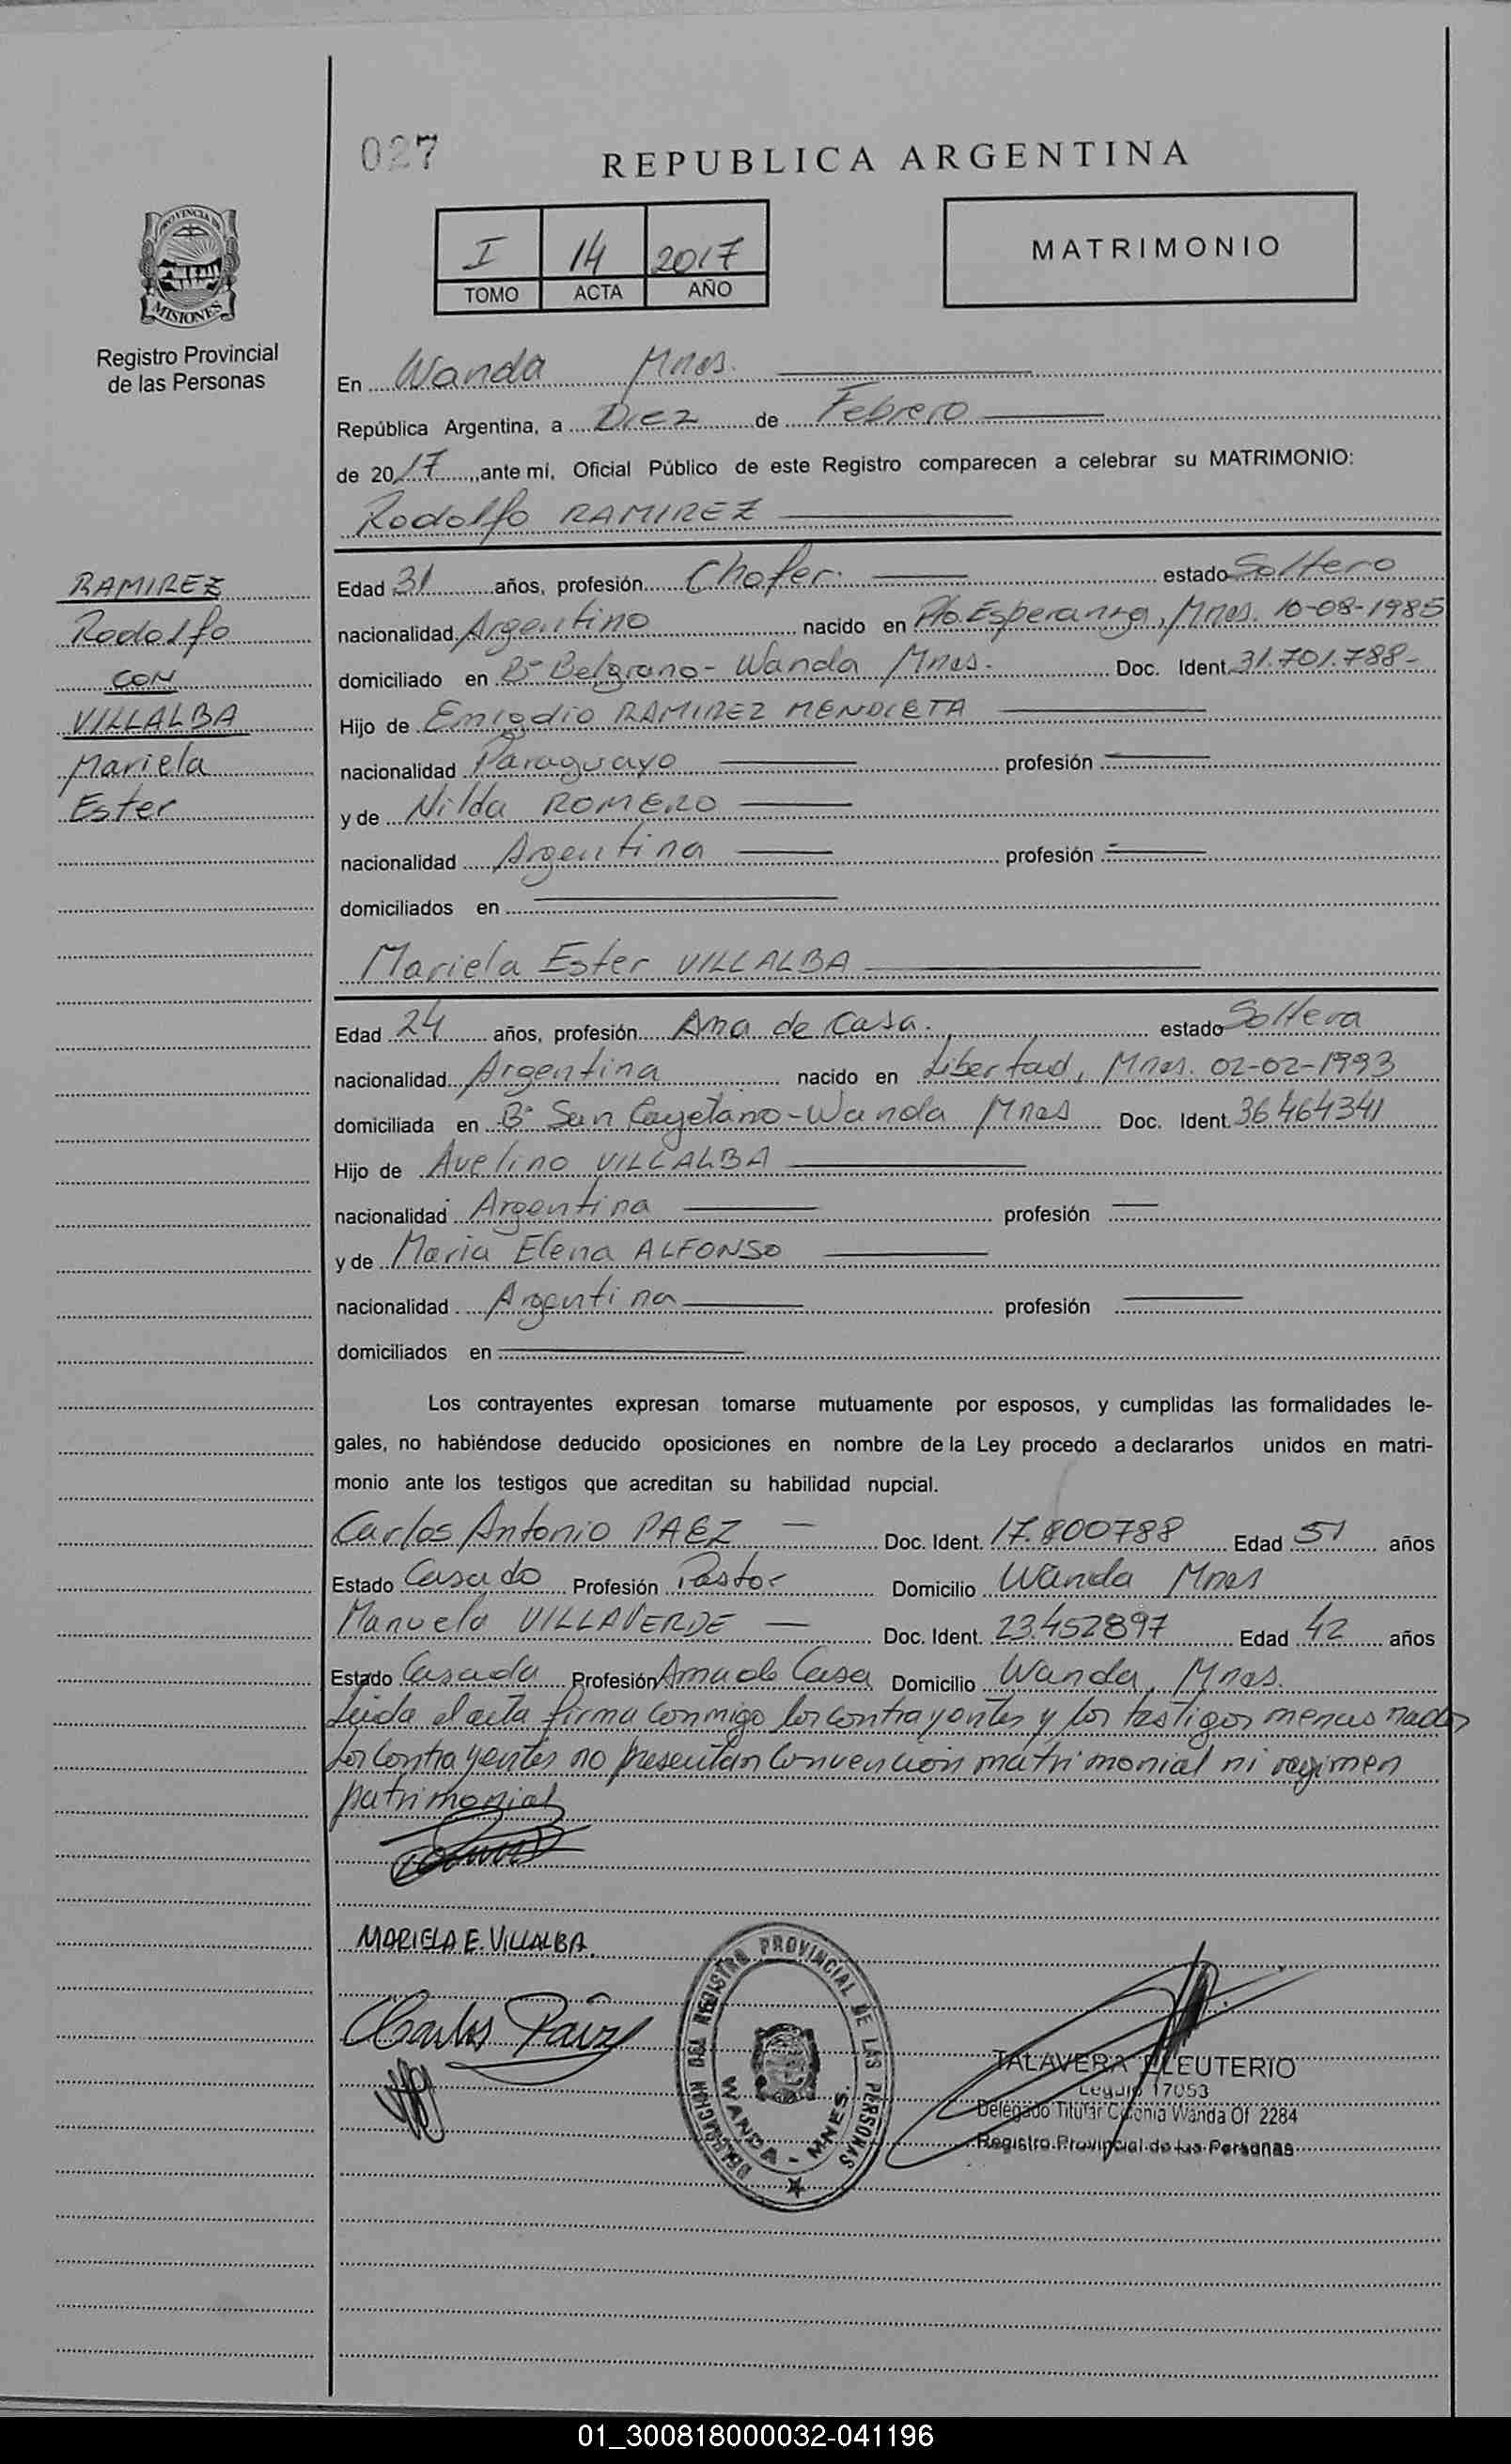 027
REPUBLICA ARGENTINA
PROVINCIA DE
MISIONES
Registro Provincial
de las Personas
I 14 2017
TOMO ACTA AÑO
MATRIMONIO
En Wanda Mnes.
República Argentina, a Diez de Febrero
de 2017, ante mí, Oficial Público de este Registro comparecen a celebrar su MATRIMONIO:
Rodolfo RAMIREZ
RAMIREZ
Rodolfo
CON
VILLALBA
Mariela
Ester
Edad 31 años, profesión Chofer. estado Soltero
nacionalidad Argentino nacido en Pto. Esperanza, Mnes. 10-08-1985
domiciliado en Bº Belgrano - Wanda Mnes. Doc. Ident. 31.701.788-
Hijo de Emigdio RAMIREZ MENDIETA
nacionalidad Paraguayo profesión
y de Nilda ROMERO
nacionalidad Argentina profesión
domiciliados en
Mariela Ester VILLALBA
Edad 24 años, profesión Ama de Casa. estado Soltera
nacionalidad Argentina nacido en Libertad, Mnes. 02-02-1993
domiciliada en Bº San Cayetano - Wanda Mnes Doc. Ident. 36.464341
Hijo de Avelino VILLALBA
nacionalidad Argentina profesión
y de Maria Elena ALFONSO
nacionalidad Argentina profesión
domiciliados en
Los contrayentes expresan tomarse mutuamente por esposos, y cumplidas las formalidades le-
gales, no habiéndose deducido oposiciones en nombre de la Ley procedo a declararlos unidos en matri-
monio ante los testigos que acreditan su habilidad nupcial.
Carlos Antonio PAEZ Doc. Ident. 17.800788 Edad 51 años
Estado Casado Profesión Pastor Domicilio Wanda Mnes
Manuela VILLAVERDE Doc. Ident. 23.452897 Edad 42 años
Estado Casada Profesión Ama de Casa Domicilio Wanda, Mnes.
Leida el acta firma conmigo los contrayentes y los testigos
los contrayentes no presentan Convencion matrimonial ni regimen
patrimonial
MARIELA E. VILLALBA.
Carlos Paez
DELEGACION DEL REGISTRO PROVINCIAL DE LAS PERSONAS
WANDA - MNES.
TALAVERA ELEUTERIO
Legajo 17053
Delegado Titular Colonia Wanda Of 2284
Registro Provincial de las Personas
01_300818000032-041196